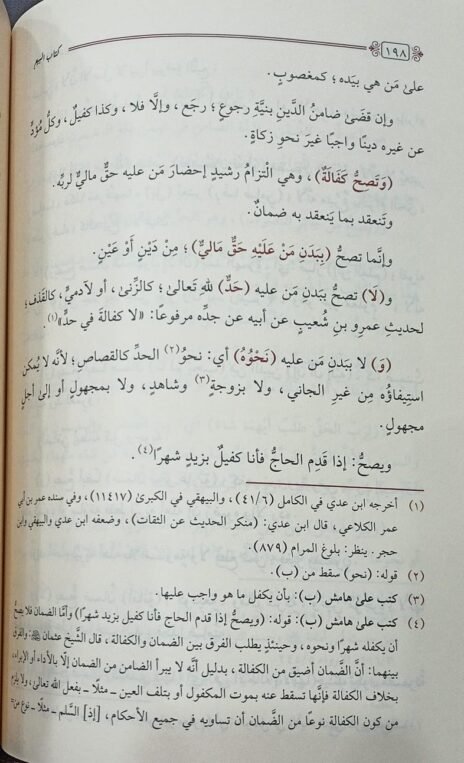 ١٩٨
كتاب البيع
على مَن هي بيَده؛ كمغصوبٍ.
وإن قضَىٰ ضامنُ الدَّينِ بنيَّةِ رجوعٍ؛ رجَع، وإلَّا فلا، وكذا كفيلٌ، وكلُّ مُؤدٍّ
عن غيره دينًا واجبًا غيرَ نحوِ زكاةٍ.
(وَتَصِحُّ كَفَالَةٌ)، وهي التزامُ رشيدٍ إحضارَ مَن عليه حقٌّ ماليٌّ لربِّه.
وتَنعقد بما يَنعقد به ضمانٌ.
وإنَّما تصحُّ (بِبَدَنِ مَنْ عَلَيْهِ حَقٌّ مَالِيٌّ)؛ مِن دَيْنٍ أَوْ عَيْنٍ.
و(لَا) تصحُّ ببَدَنِ مَن عليه (حَدٌّ) للهِ تعالىٰ؛ كالزِّنىٰ، أو لآدميٍّ، كالقَذف؛
لحديثِ عمرِو بنِ شُعيبٍ عن أبيه عن جدِّه مرفوعًا: «لا كفالةَ في حدٍّ»(١).
(وَ) لا ببدنِ مَن عليه (نَحْوُهُ) أي: نحوُ(٢) الحدِّ كالقصاصِ؛ لأنَّه لا يُمكن
استِيفاؤُه مِن غيرِ الجاني، ولا بزوجةٍ(٣) وشاهدٍ، ولا بمجهولٍ أو إلىٰ أجلٍ
مجهولٍ.
ويصحُّ: إذا قَدِم الحاجُّ فأنا كفيلٌ بزيدٍ شهرًا(٤).
(١) أخرجه ابن عدي في الكامل (٤١/٦)، والبيهقي في الكبرىٰ (١١٤١٧)، وفي سنده عمر بن أبي
عمر الكلاعي، قال ابن عدي: (منكر الحديث عن الثقات)، وضعفه ابن عدي والبيهقي وابن
حجر. ينظر: بلوغ المرام (٨٧٩).
(٢) قوله: (نحو) سقط من (ب).
(٣) كتب علىٰ هامش (ب): بأن يكفل ما هو واجب عليها.
(٤) كتب علىٰ هامش (ب): قوله: (ويصحُّ إذا قدم الحاج فأنا كفيل بزيد شهرًا) وأمَّا الضمان فلا يصحُّ
أن يكفله شهرًا ونحوه، وحينئذٍ يطلب الفرق بين الضمان والكفالة، قال الشَّيخ عثمان: والفرق
بينهما: أنَّ الضَّمان أضيق من الكفالة، بدليل أنَّه لا يبرأ الضامن من الضمان إلَّا بالأداء أو الإبراء،
بخلاف الكفالة فإنَّها تسقط عنه بموت المكفول أو بتلف العين ـ مثلًا ـ بفعل الله تعالىٰ، ولا يلزم
من كون الكفالة نوعًا من الضَّمان أن تساويه في جميع الأحكام، [إذ] السَّلم ـ مثلًا ـ نوع من=